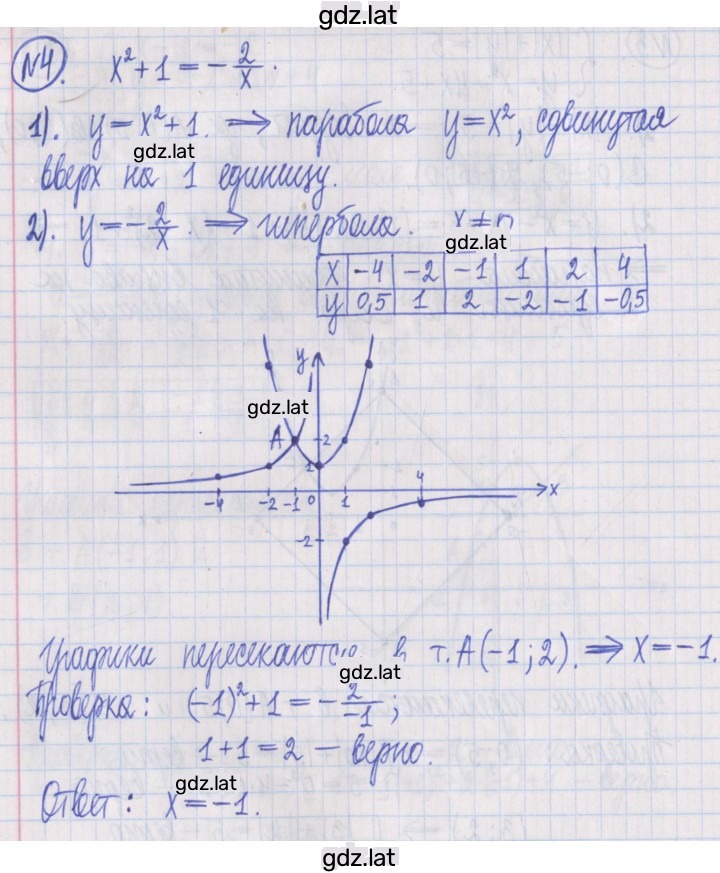 gdz.lat
№4. x² + 1 = -2/x.
1). y = x² + 1. ⟹ парабола y = x², сдвинутая
gdz.lat
вверх на 1 единицу.
2). y = -2/x. ⟹ гипербола. x ≠ 0
gdz.lat
x -4 -2 -1 1 2 4
y 0,5 1 2 -2 -1 -0,5
y
gdz.lat
A 2
1
-4 -2 -1 0 1 4 x
-2
Графики пересекаются в т. A(-1; 2). ⟹ x = -1.
gdz.lat
Проверка: (-1)² + 1 = -2/-1;
1 + 1 = 2 — верно.
gdz.lat
Ответ: x = -1.
gdz.lat